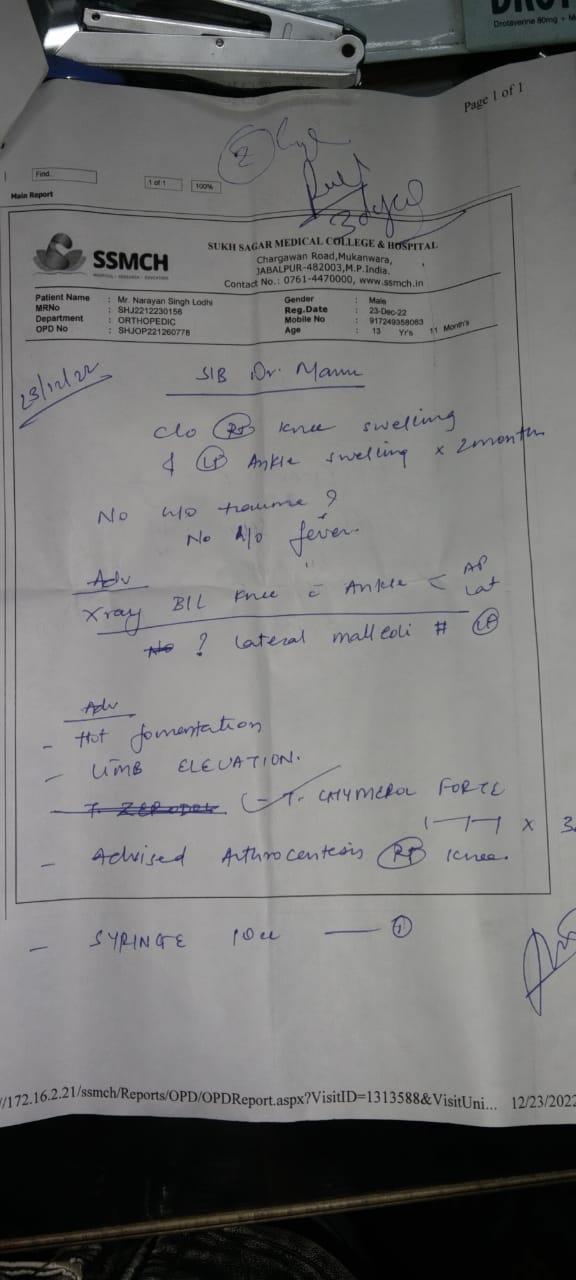 Drotaverine 80mg + M
Page 1 of 1
2
Find
1 of 1
100%
Main Report
SSMCH
SUKH SAGAR MEDICAL COLLEGE & HOSPITAL
Chargawan Road,Mukanwara,
JABALPUR-482003,M.P.India.
Contact No.: 0761-4470000, www.ssmch.in
Patient Name : Mr. Narayan Singh Lodhi Gender : Male
MRNo : SHJ2212230156 Reg.Date : 23-Dec-22
Department : ORTHOPEDIC Mobile No : 917249358063
OPD No : SHJOP221260778 Age : 13 Yrs 11 Month's
23/12/22
S/B Dr. Manu
c/o RT Knee swelling
& LT Ankle swelling x 2 month
No h/o trauma ?
No h/o fever
Adv
Xray B/L Knee c Ankle < AP Lat
? Lateral malleoli # LT
Adv
- Hot fomentation
- LIMB ELEVATION.
- T. ZERODOL T. CHYMEROL FORCE
1-1-1 x 3
- Advised Arthrocentesis RT Knee.
- SYRINGE 10cc — 1
//172.16.2.21/ssmch/Reports/OPD/OPDReport.aspx?VisitID=1313588&VisitUni... 12/23/2022